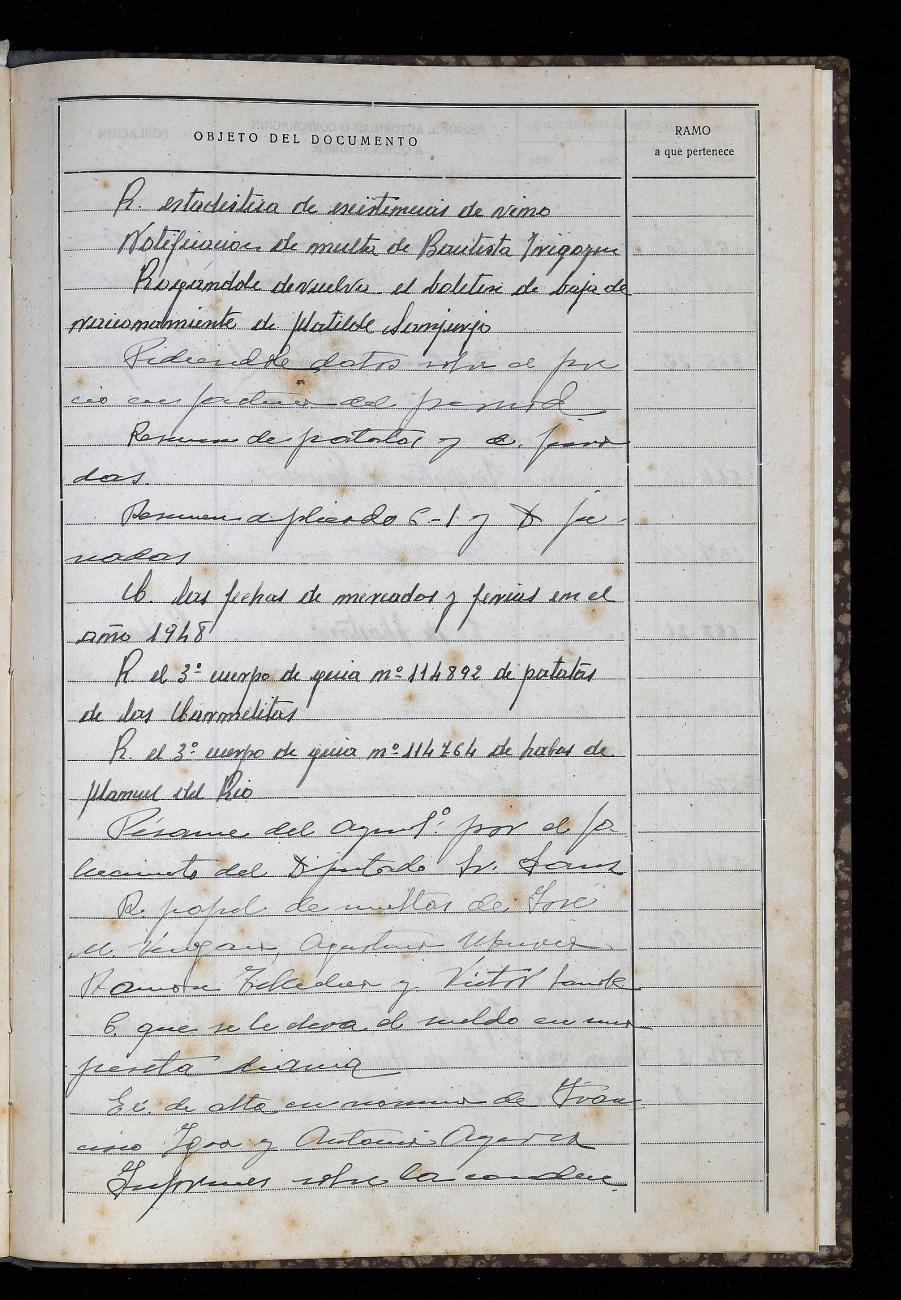 OBJETO DEL DOCUMENTO
RAMO
a que pertenece
R. estadistica de existencias de vino
Notificacion de multa de Bautista Irigoyen
Rogándole devuelva el boletin de baja de
racionamiento de Matilde Sanjurjo
Pidiendole datos sobre el pre
cio
Resumen de patatas y
das
Resumen 6-1 y
nadas
C. las fechas de mercados y ferias en el
año 1948
R el 3º cuerpo de guia nº 114892 de patatas
de las Carmelitas
R. el 3º cuerpo de guia nº 114764 de habas de
Manuel del Rio
Pésame del Ayuntº. por el fa-
llecimiento del Diputado Sr. Sanz
R. papel de multas de José
M.
Ramon y Victor
C. que se le eleva el sueldo en una
peseta diaria
de alta en nómina de Fran
cisco y Antonio
Informes sobre la conduc